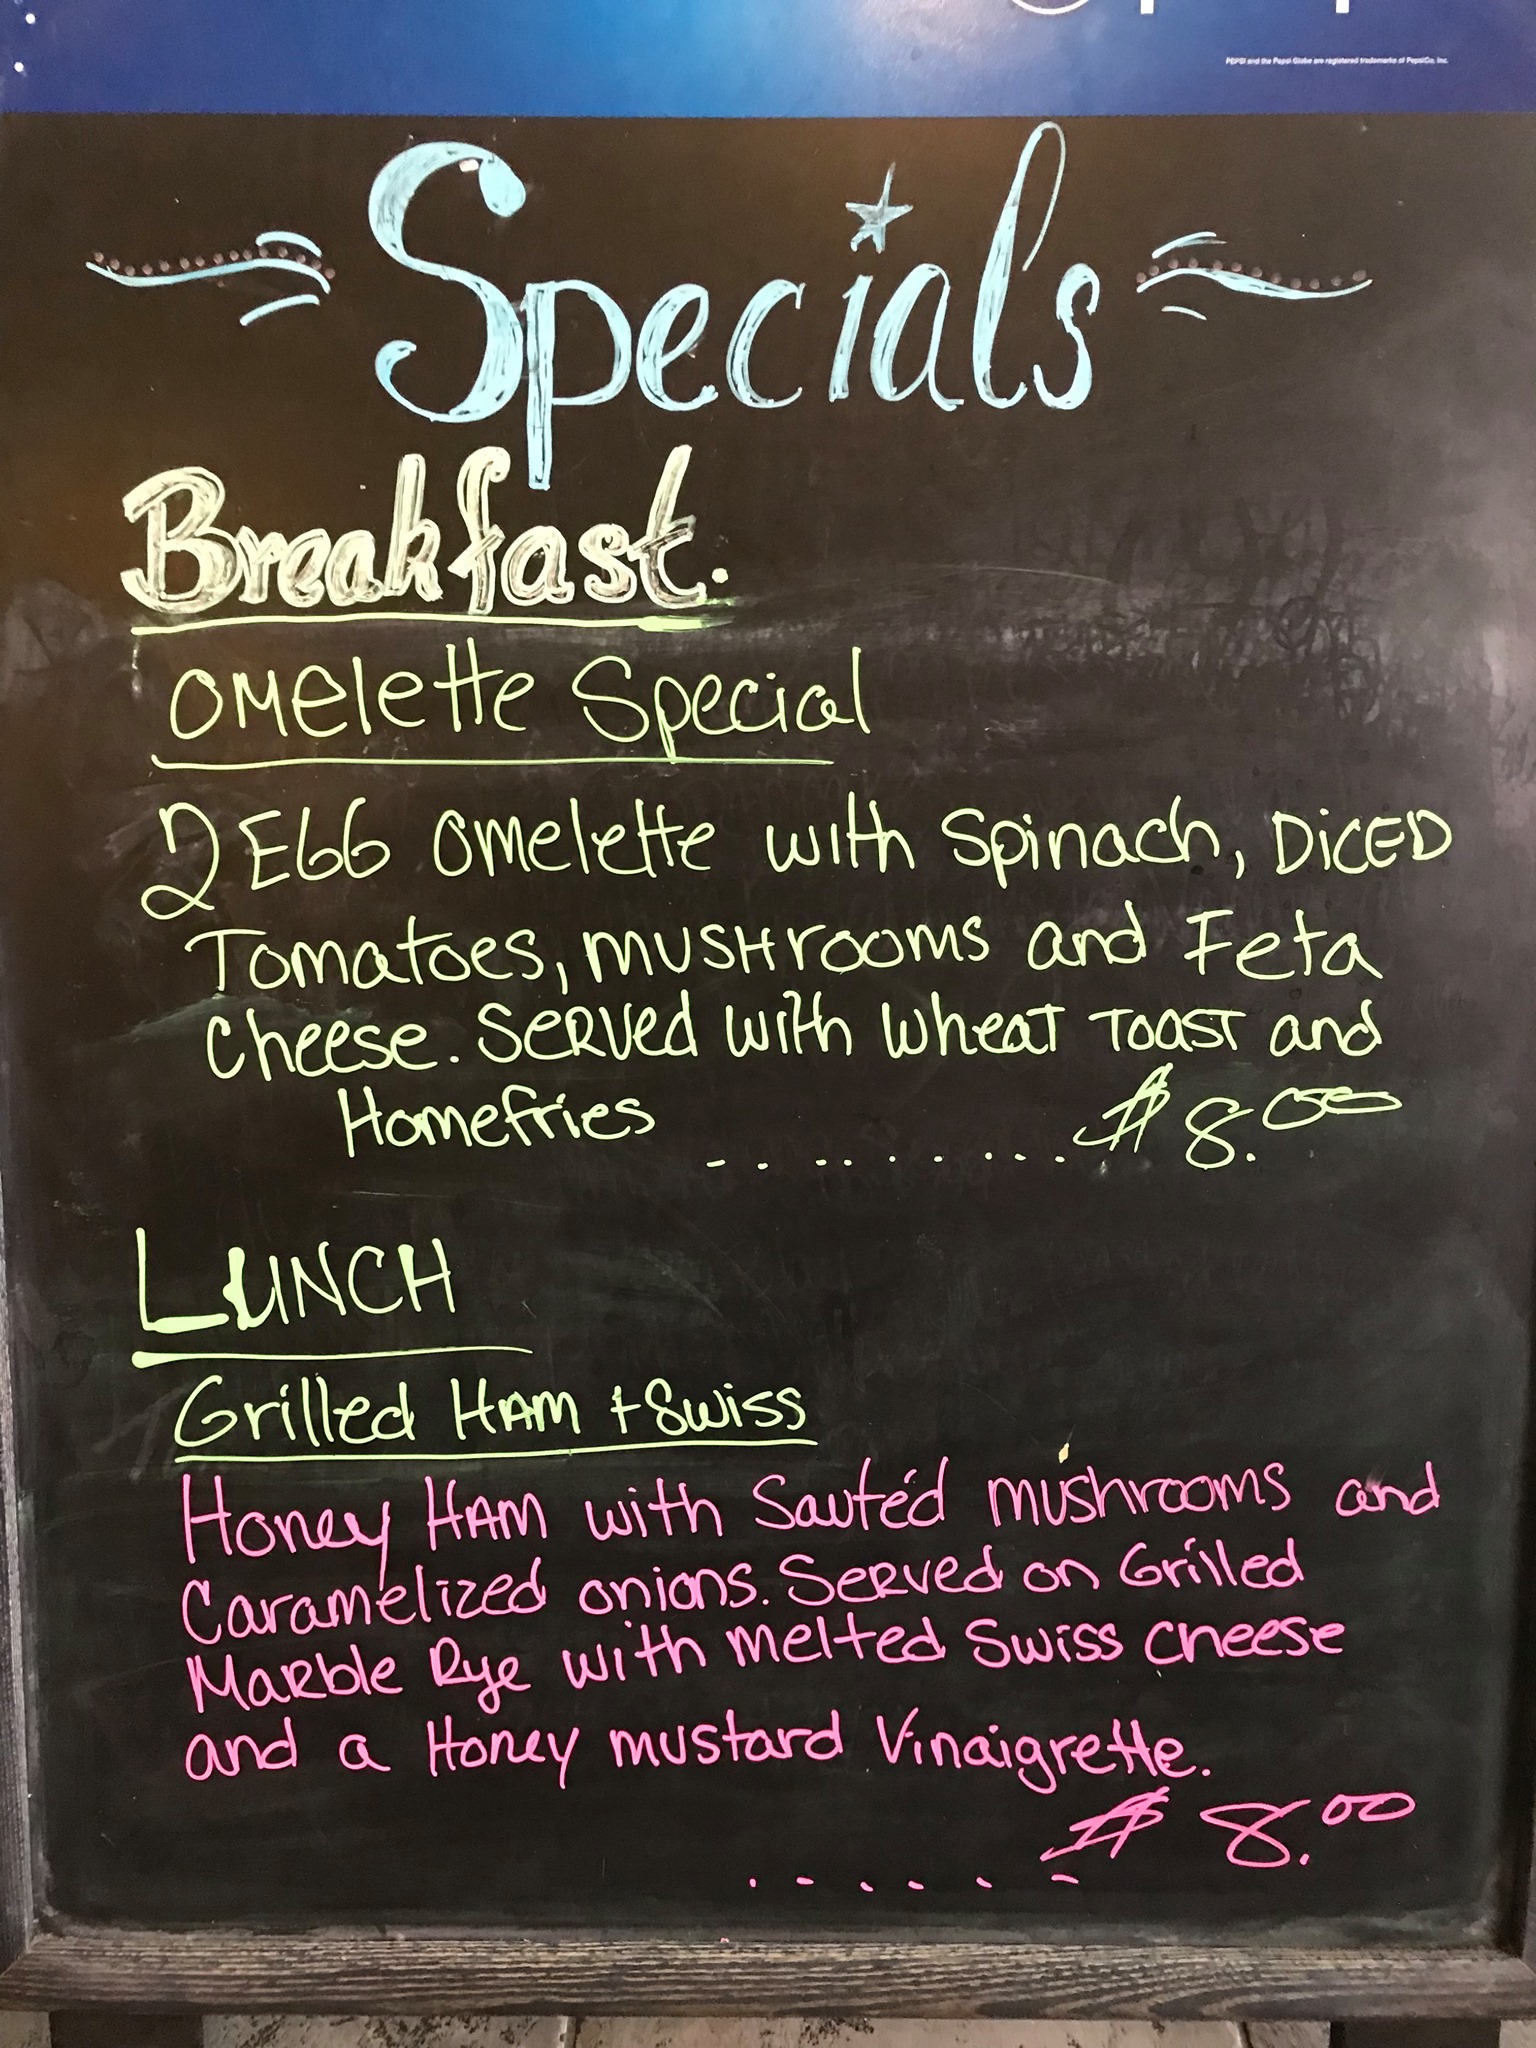 PEPSI and the Pepsi Globe are registered trademarks of PepsiCo, Inc.
Specials
Breakfast.
OMelette Special
2 EGG OMelette with Spinach, DiCED
Tomatoes, MUSHrooms and Feta
Cheese. SERVed with wheat TOAST and
Homefries .......... $8.00
LUNCH
Grilled HAM + Swiss
Honey HAM with Sautéd mushrooms and
Caramelized onions. SERVED on Grilled
Marble Rye with melted Swiss cheese
and a Honey mustard Vinaigrette.
...... $8.00